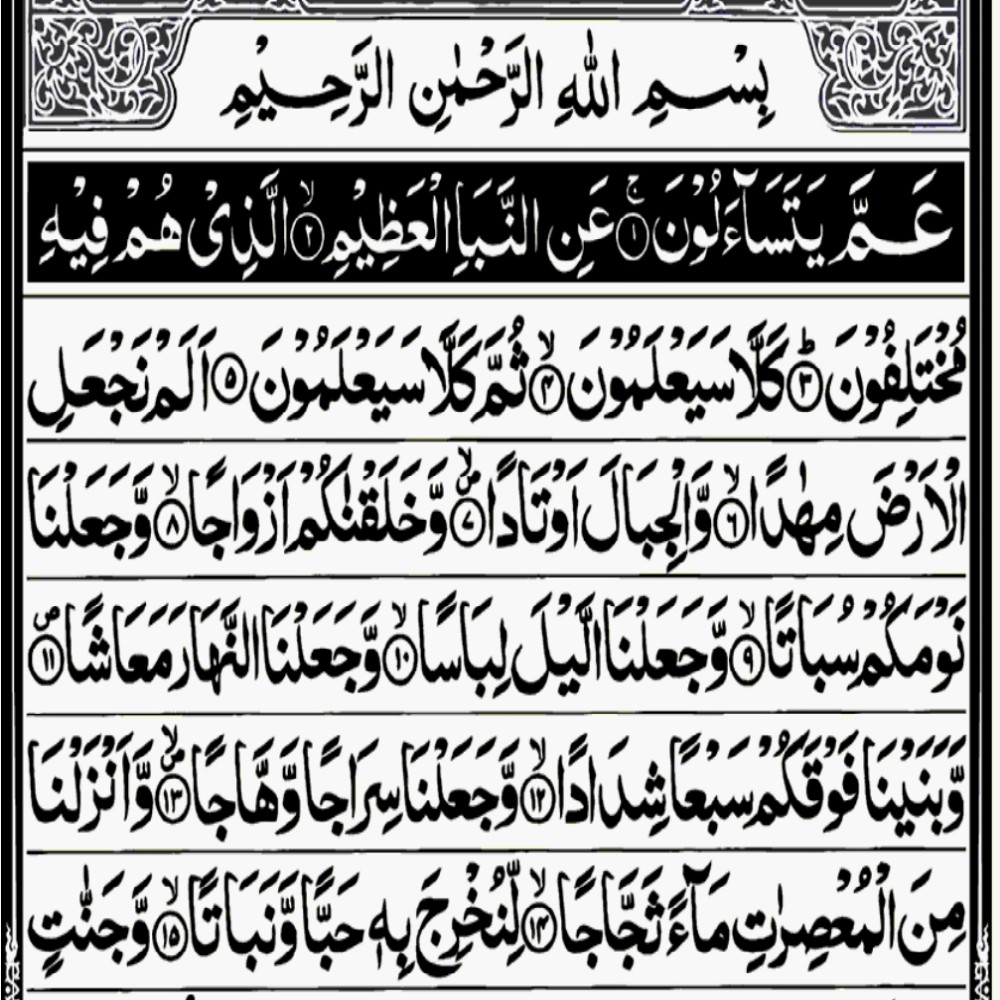 بِسْمِ اللهِ الرَّحْمٰنِ الرَّحِيْمِ
عَمَّ يَتَسَآءَلُوْنَ ۚ﴿۱﴾ عَنِ النَّبَاِ الْعَظِيْمِ ۙ﴿۲﴾ الَّذِيْ هُمْ فِيْهِ
مُخْتَلِفُوْنَ ؕ﴿۳﴾ كَلَّا سَيَعْلَمُوْنَ ۙ﴿۴﴾ ثُمَّ كَلَّا سَيَعْلَمُوْنَ ﴿۵﴾ اَلَمْ نَجْعَلِ
الْاَرْضَ مِهٰدًا ۙ﴿۶﴾ وَّالْجِبَالَ اَوْتَادًا ۪ۙ﴿۷﴾ وَّخَلَقْنٰكُمْ اَزْوَاجًا ۙ﴿۸﴾ وَّجَعَلْنَا
نَوْمَكُمْ سُبَاتًا ۙ﴿۹﴾ وَّجَعَلْنَا الَّيْلَ لِبَاسًا ۙ﴿۱۰﴾ وَّجَعَلْنَا النَّهَارَ مَعَاشًا ۪﴿۱۱﴾
وَّبَنَيْنَا فَوْقَكُمْ سَبْعًا شِدَادًا ۙ﴿۱۲﴾ وَّجَعَلْنَا سِرَاجًا وَّهَّاجًا ۪ۙ﴿۱۳﴾ وَّاَنْزَلْنَا
مِنَ الْمُعْصِرٰتِ مَآءً ثَجَّاجًا ۙ﴿۱۴﴾ لِّنُخْرِجَ بِهٖ حَبًّا وَّنَبَاتًا ۙ﴿۱۵﴾ وَّجَنّٰتٍ